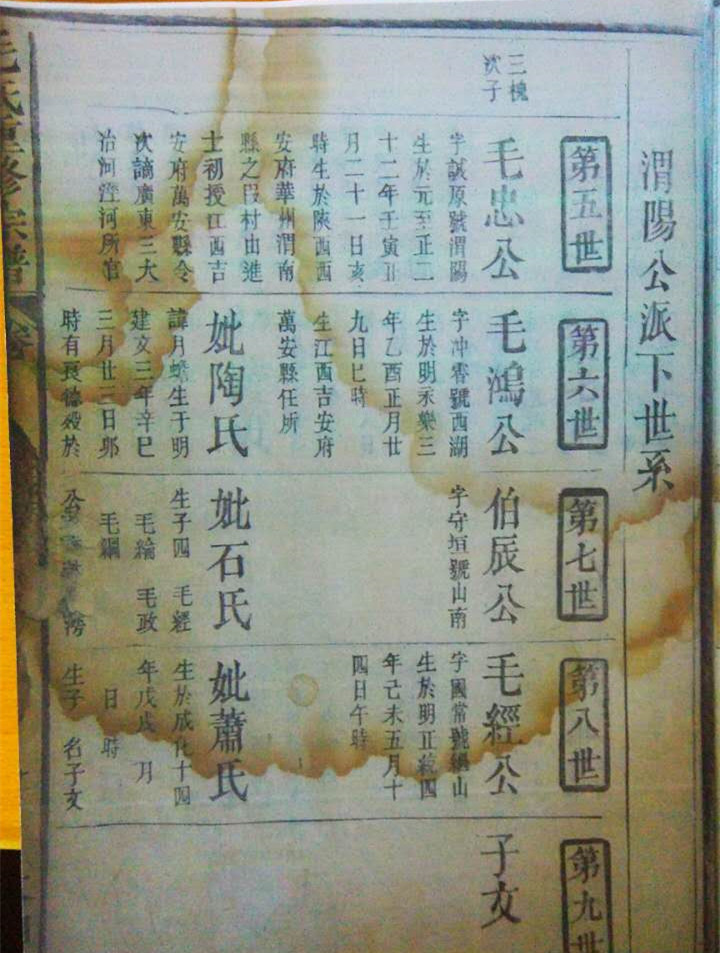 渭陽公派下世系
第五世
三槐
次子
毛忠公
字誠原號渭陽
生於元至正二
十二年壬寅丑
月二十一日亥
時生於陝西西
安府華州渭南
縣之段村由進
士初授江西吉
安府萬安縣令
次謫廣東三大
冶河涇河所官
第六世
毛鴻公
字冲霄號西湖
生於明永樂三
年乙酉正月廿
九日巳時
生江西吉安府
萬安縣任所
妣陶氏
諱月蟾生于明
建文三年辛巳
三月廿三日卯
時有長德毅於
第七世
伯辰公
字守垣號山南
妣石氏
生子四 毛經
毛綸 毛政
毛綱
第八世
毛經公
字國常號山
生於明正統四
年己未五月十
四日午時
妣蕭氏
生於成化十四
年戊戌 月
日 時
生子 名子友
第九世
子友
毛氏重修宗譜